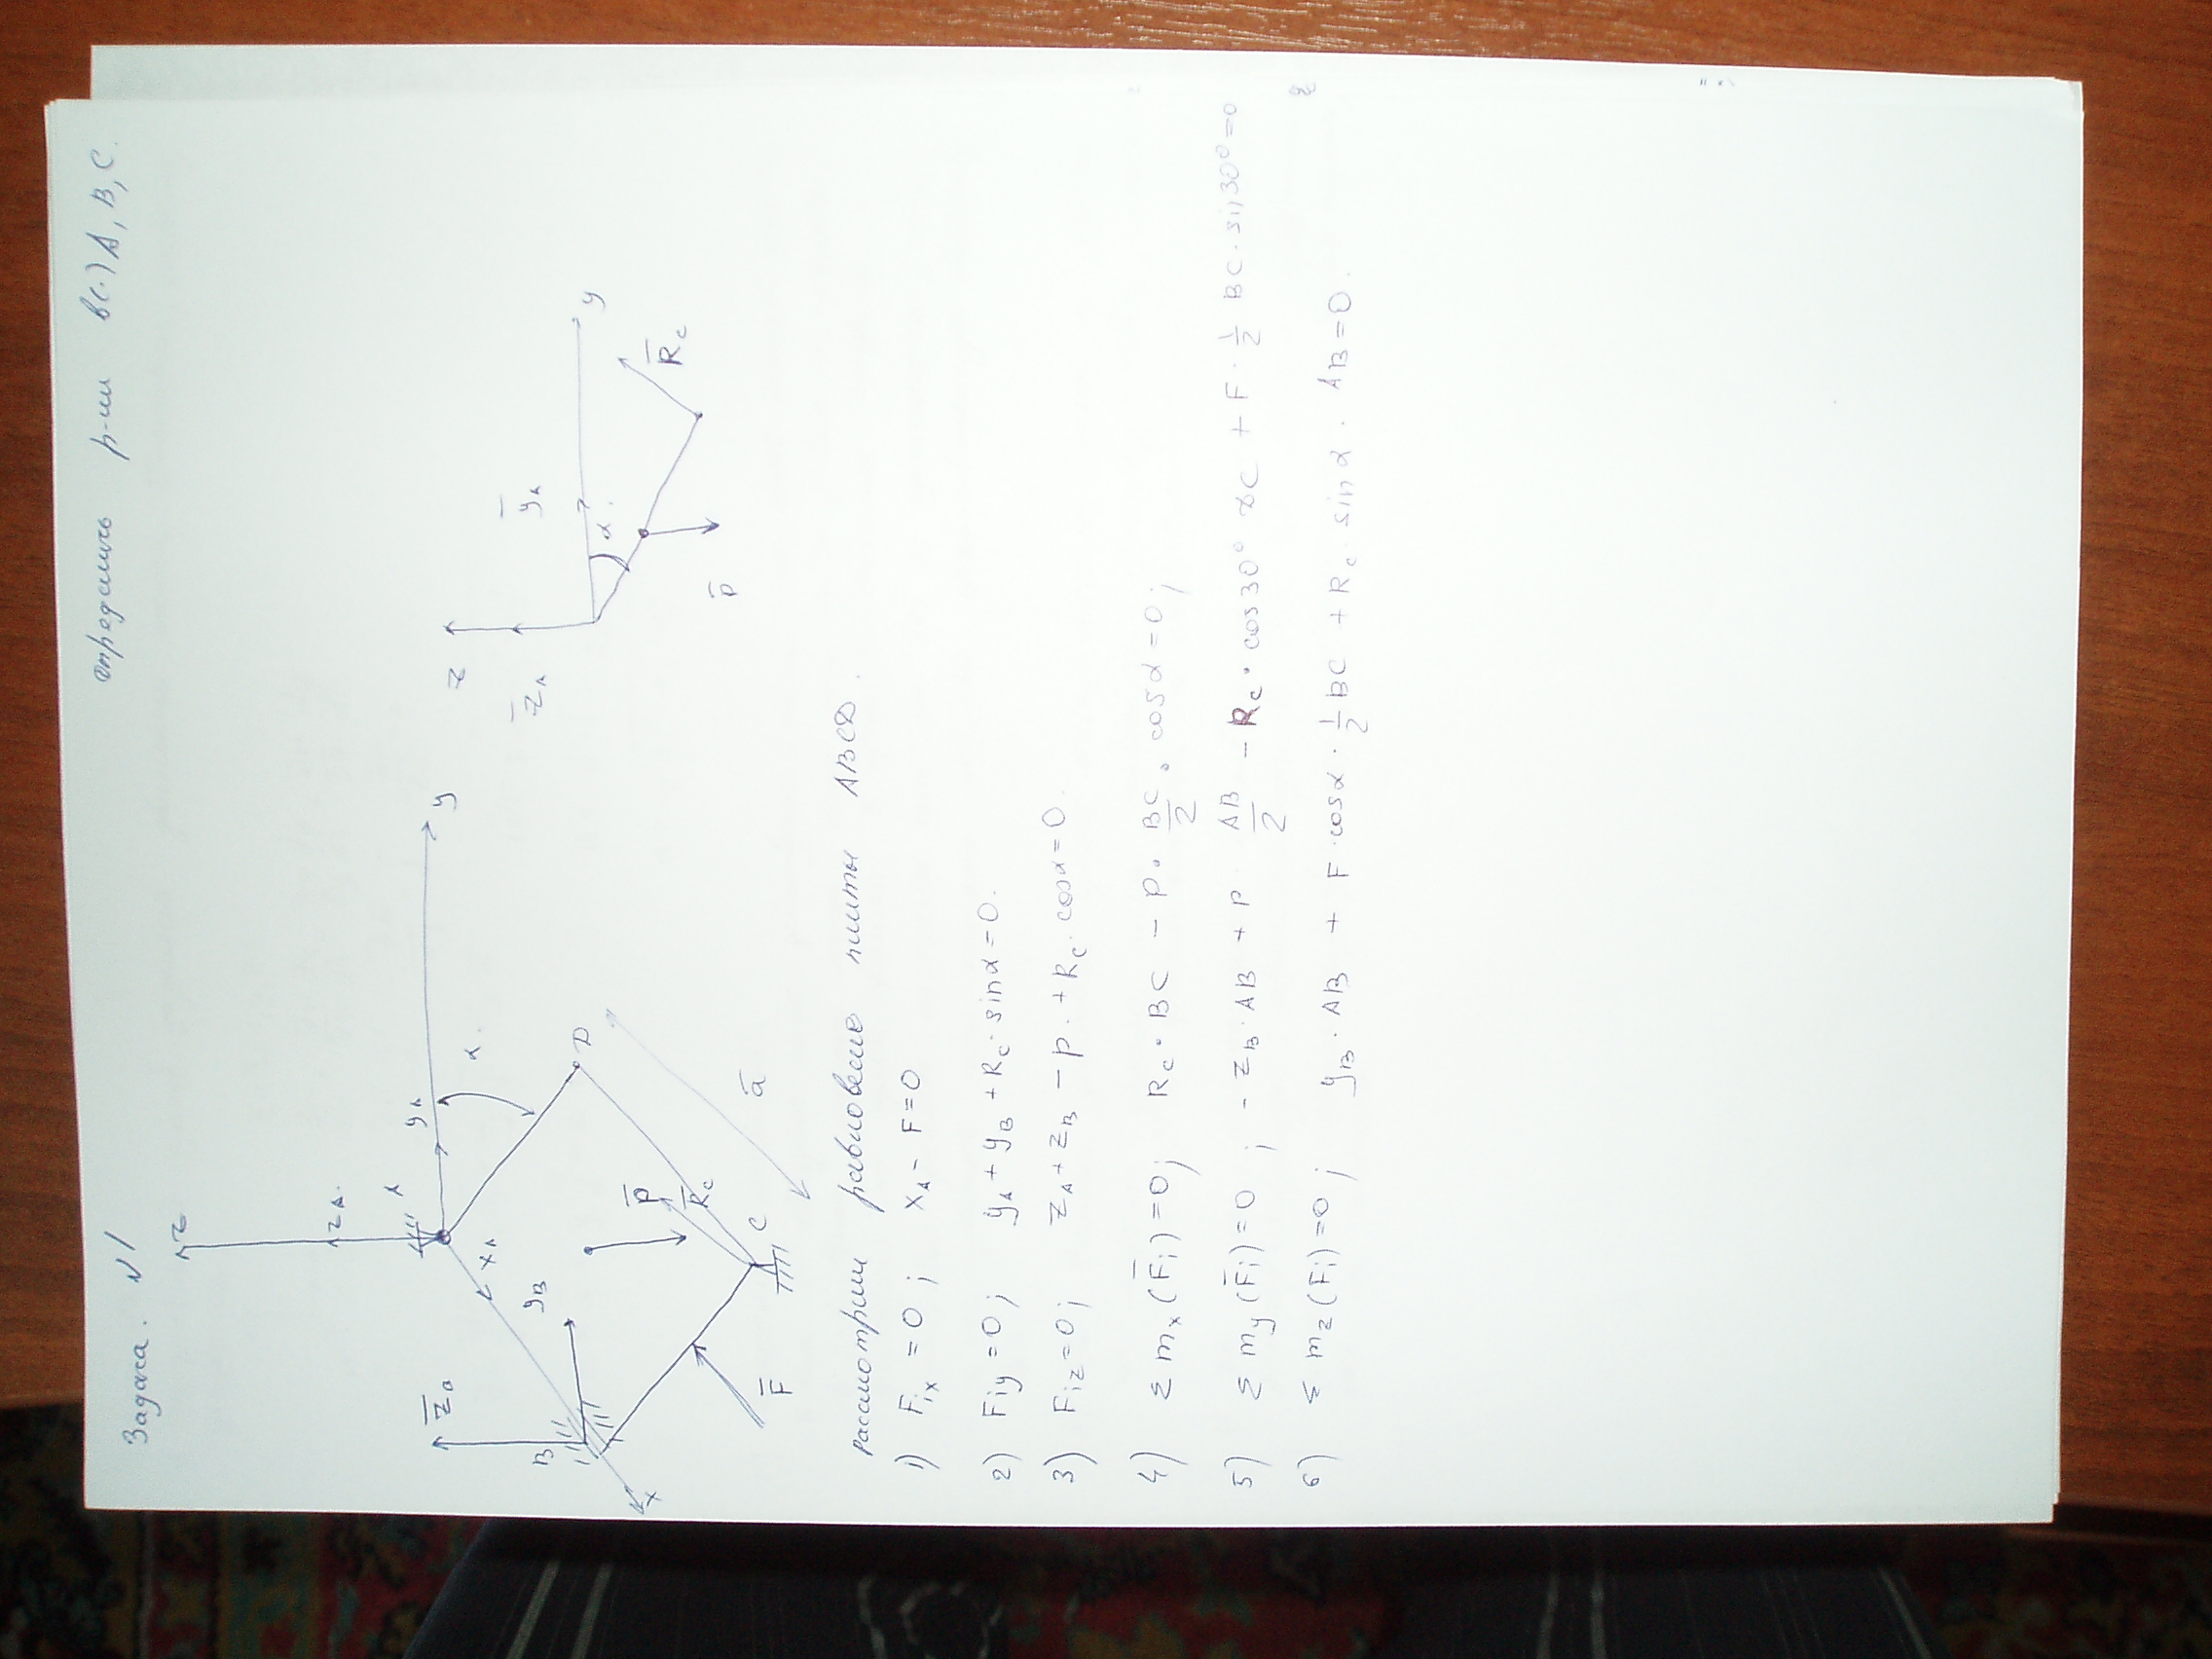 Задача. N1
определить р-ии вс.) A, B, C.
z
z̄A
A
yA
y
α
xA
z̄B
B
yB
x
P̄
R̄c
D
C
F̄
ā
z
z̄A
ȳA
y
α
R̄c
P̄
Рассмотрим равновесие плиты ABCD.
1) Fix = 0; XA - F = 0
2) Fiy = 0; yA + yB + Rc · sinα = 0.
3) Fiz = 0; zA + zB - P. + Rc · cosα = 0.
4) Σ mx (F̄i) = 0; Rc · BC - P · BC/2 · cosα = 0;
5) Σ my (F̄i) = 0; - zB · AB + P · AB/2 - Rc · cos30° · BC + F · 1/2 BC · sin30° = 0
6) Σ mz (Fi) = 0; yB · AB + F · cosα · 1/2 BC + Rc · sinα · AB = 0.